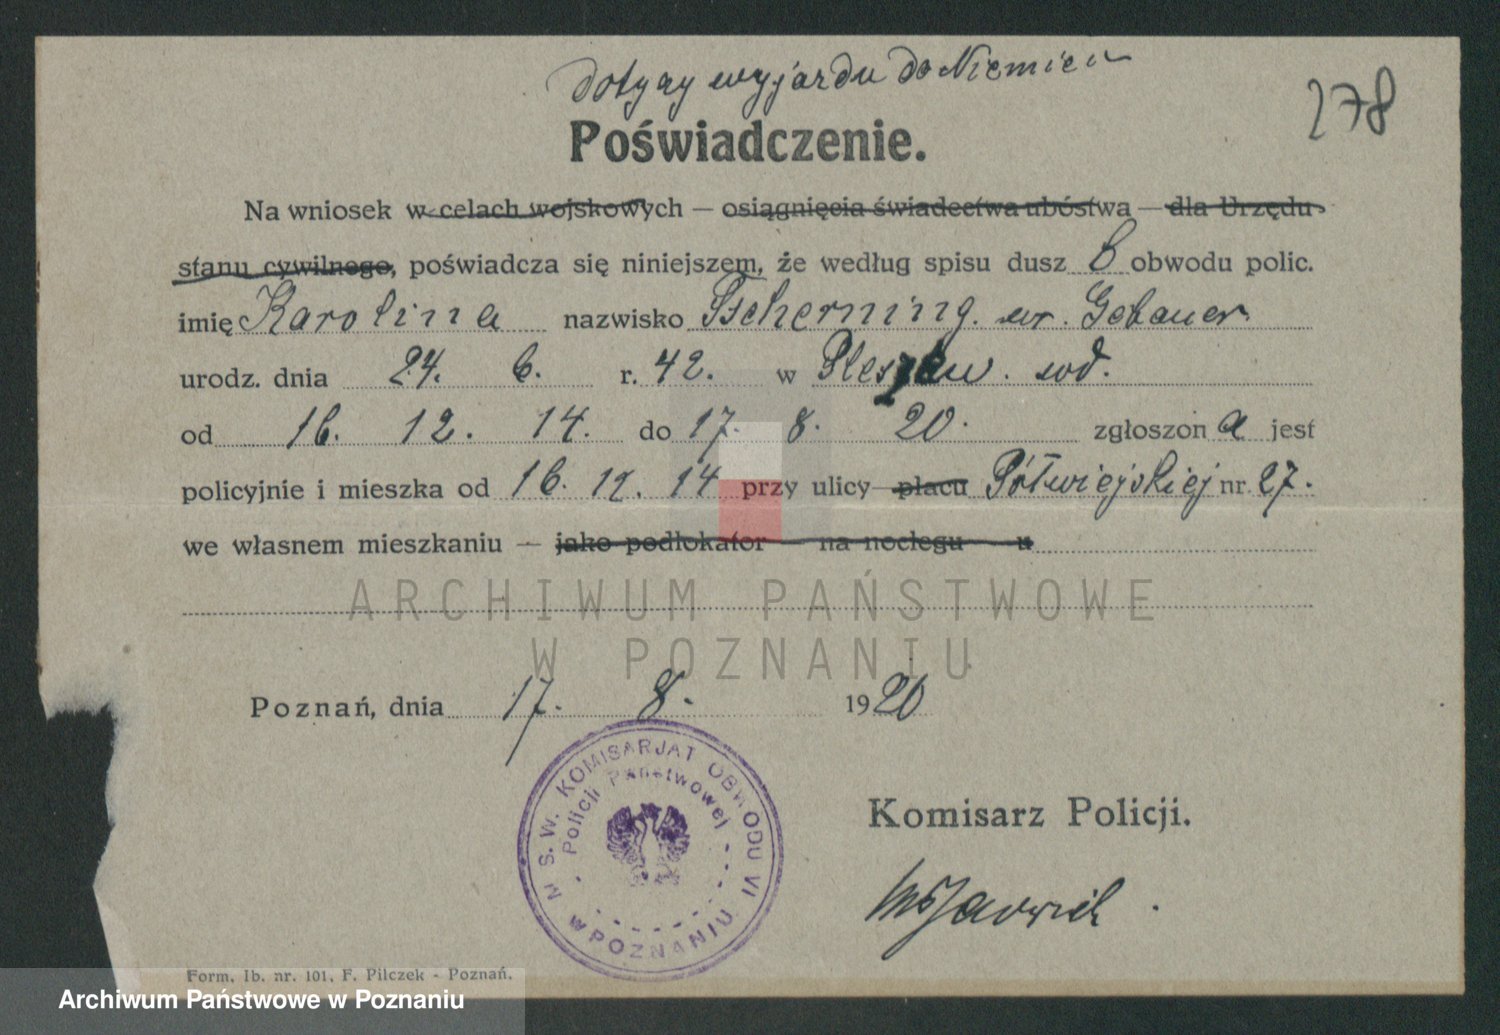 dotyczy wyjazdu do Niemiec
278
Poświadczenie.
Na wniosek w celach wojskowych — osiągnięcia świadectwa ubóstwa — dla Urzędu
stanu cywilnego, poświadcza się niniejszem, że według spisu dusz 6 obwodu polic.
imię Karolina nazwisko Tscherning. ur. Gebauer
urodz. dnia 24. 6. r. 42. w Pleszew. wd.
od 16. 12. 14. do 17. 8. 20. zgłoszon a jest
policyjnie i mieszka od 16. 12. 14 przy ulicy placu Półwiejskiej nr. 27.
we własnem mieszkaniu — jako podlokator — na noclegu — u
ARCHIWUM PAŃSTWOWE
W POZNANIU
Poznań, dnia 17. 8. 1920
M S. W. KOMISARJAT OBWODU VI
Policji Państwowej
w POZNANIU
Komisarz Policji.
Form. Ib. nr. 101. F. Pilczek - Poznań.
Archiwum Państwowe w Poznaniu